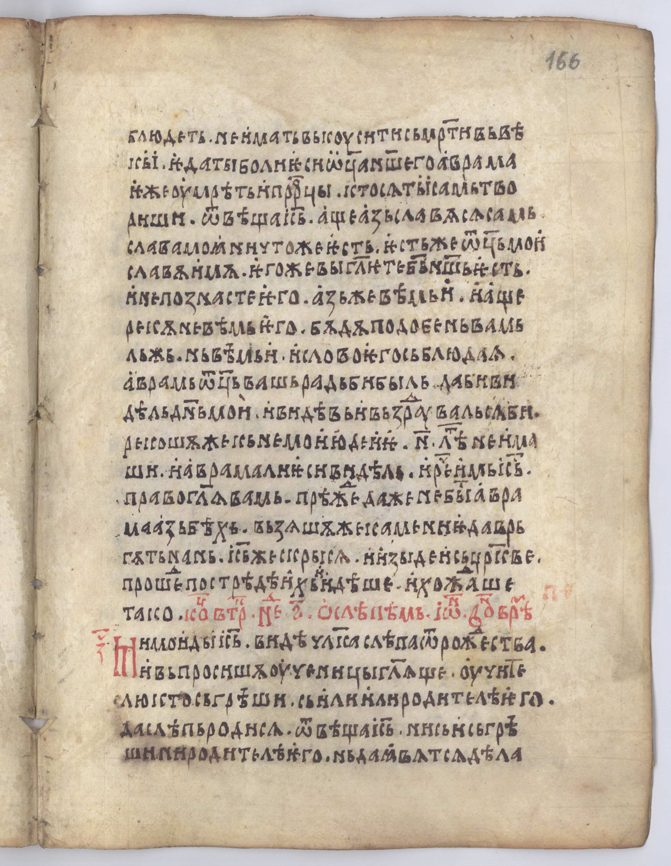 166
блюдеть. не имать въкоусити съмр҃ти въ вѣ
кы. и҆ ѥда ты боли ѥси ѿц҃а нш҃его а҆врама
и҆же оумрѣть и пр҃рци. кто сѧ ты самь тво
риши. ѿвѣща іс҃ь. аще азь славѫ сѧ самь
слава моꙗ ничтоже ѥсть. ѥсть же ѿц҃ь мои
славѧи мѧ. ѥгоже вы гл҃ѥте б҃ь нш҃ь ѥсть.
и не познасте ѥго. азь же вѣмь и. и аще
рекѫ не вѣмь ѥго. бѫдѫ подобень вамь
льжь. нь вѣмь и. и слово ѥго сьблюдаѫ.
аврамь ѿц҃ь вашь радь би быль. да би ви
дѣль дн҃ь мои. и видѣвь и вьзрадова ль сѧ би.
рекошѧ же кь немоу июдеи. н҃. лѣт не има
ши. и аврама ли ѥси видѣль. и рече имь іс҃ь.
право гл҃ѫ вамь. прѣжде даже не бы а҆вра
ма азь бѣхь. вьзѧшѧ же камениѥ да врь
гѫть на нь. іс҃ь же скры сѧ. и изыде ись цр҃кве.
прошед посрѣдѣ ихь идѣше. и хождаше
тако. ко҃ц втр҃. не҃д ѕ҃. о҆ слѣпѣмь. іѡ҃. за҃ч въ врѣ
Мимоиды іс҃ь. видѣ чл҃ка слѣпа ѿ рожества.
и вьпросишѫ оученици гл҃ѫще. оучите
лю кто сьгрѣши. сь ли или родителѣ ѥго.
да слѣпь роди сѧ. ѿвѣща іс҃ь. ни сь и сьгрѣ
ши ни родителѣ ѥго. нь да ꙗвѧт сѧ дѣла